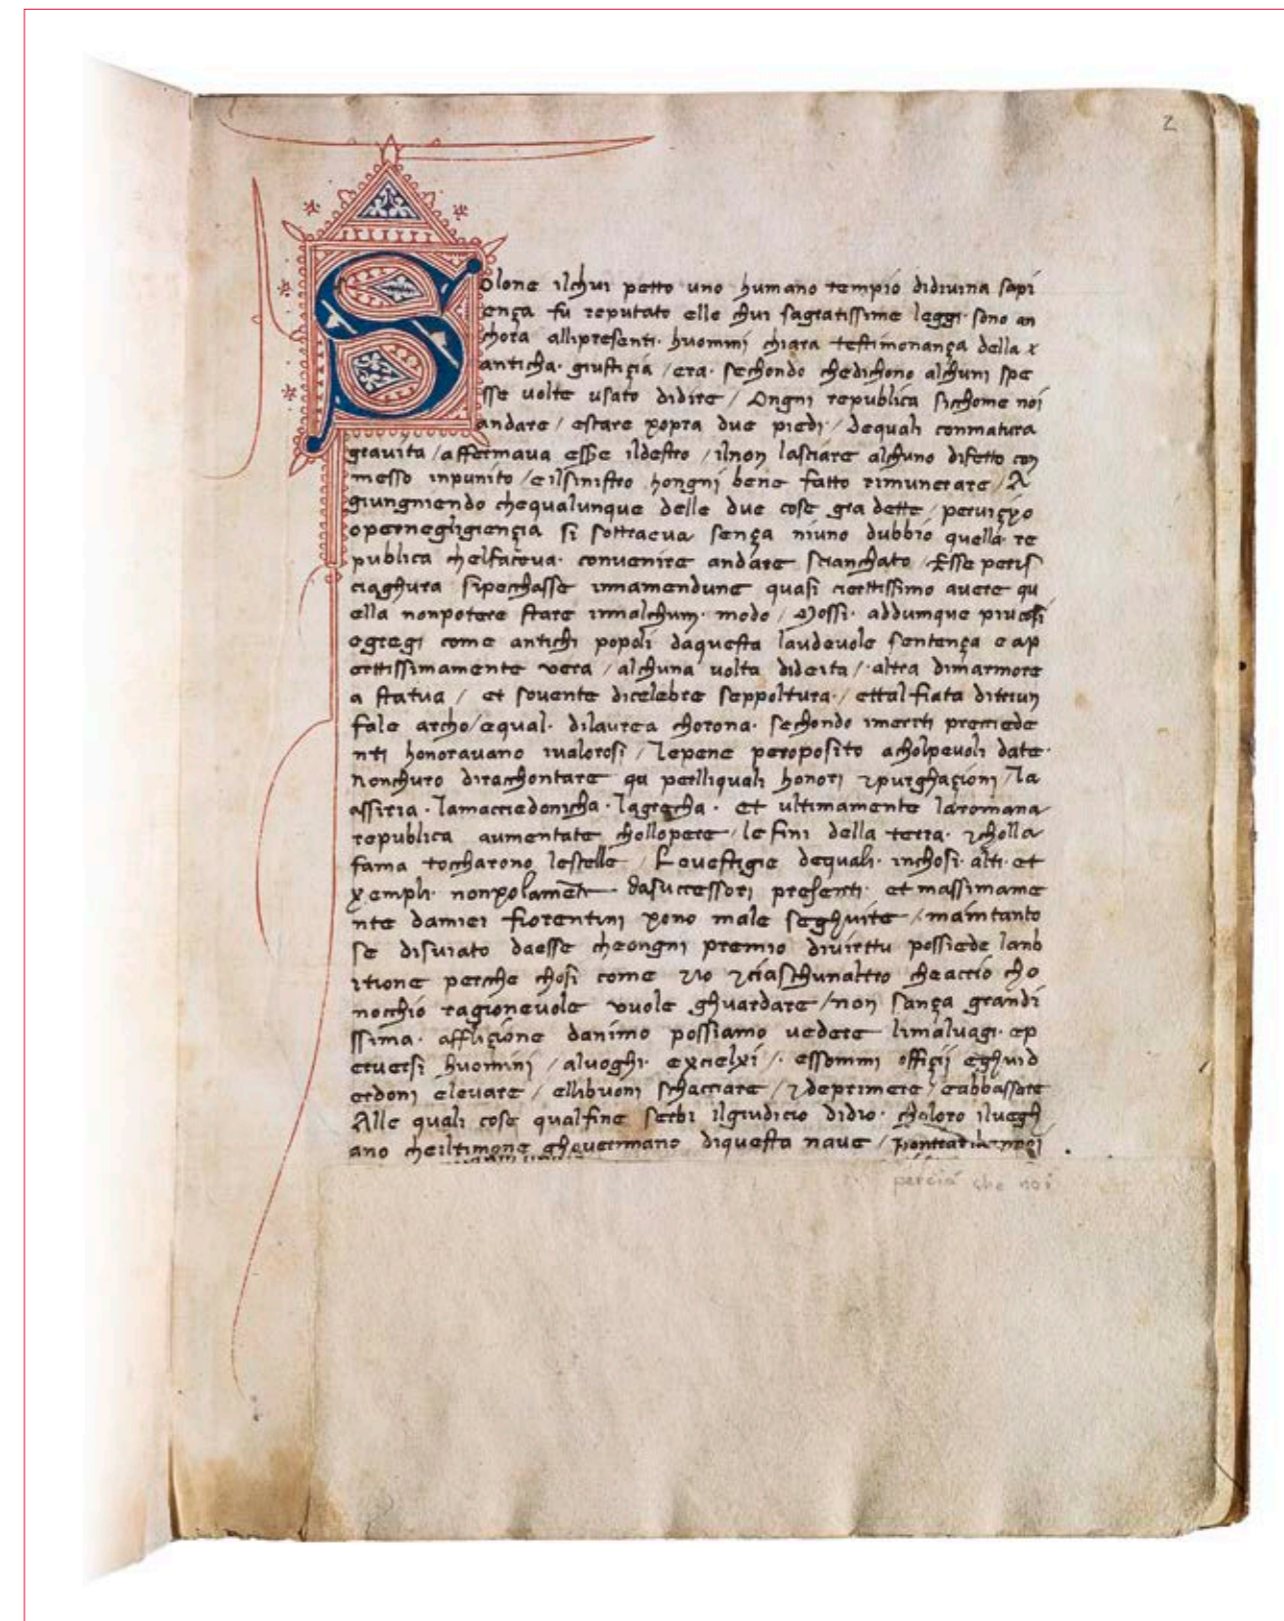 2
Solone ilchui petto uno humano tempio didivina sapi
ença fu reputato elle chui sagratissime leggi· sono an
chora allipresenti· huomini chiara testimonança della x
anticha· giustiçia / era· sechondo chedichono alchuni spe
sse volte usato didire / Ongni republica sichome noi
andare / estare xopra due piedi / dequali conmatura
gravita / affermava esse ildestro / ilnon lasciare alchuno difetto con
messo inpunito / eilsinistro hongni bene fatto rimunerare / A
giungniendo chequalunque delle due cose gia dette / perviçio
opernegligiençia si sottraeva sença niuno dubbio quella· re
publica chelfaceva· convenire andare scianchato / Esse peris
ciaghura sipechasse innamendune quasi ciertissimo avere qu
ella nonpotere stare innalchun· modo / Mossi· addumque piu cosi
egregi come antichi popoli daquesta laudevole sentença e ap
erttissimamente vera / alchuna volta dideita / altra dimarmore
a statua / et sovente dicelebre seppoltura· / ettal fiata ditriun
fale archo / equal· dilaurea chorona· sechondo imeriti preciede
nti honoravano ivalorosi / lepene peroposito acholpevoli date·
Nonchuro dirachontare qu perlliquali honori et purghaçioni / la
assiria· lamaciedonicha· lagrecha· et ultimamente laromana
republica aumentate chollopere / le fini della terra· et cholla
fama toccharono lestelle / Levestigie dequali· inchosi· alti· et
xempli· nonxolamente dasuccessori presenti· et massimame
nte damiei fiorentini xono male seghuite / maintanto
se disviato daesse cheongni premio divirttu possiede lanb
itione perche chosi come et io et ciaschunaltro cheaccio cho
nocchio ragionevole vuole ghuardare / non sança grandi
ssima· affliçione danimo possiamo vedere limalvagi· ep
erversi huomini / aluoghi· excielxi / · essommi offiçii eghuid
erdoni elevare / ellibuoni schacciare / et deprimere / eabbassare
Alle quali cose qualfine serbi ilgiudicio didio· choloro ilvegh
ano cheiltimone ghovernnano diquesta nave /
perciò che noi